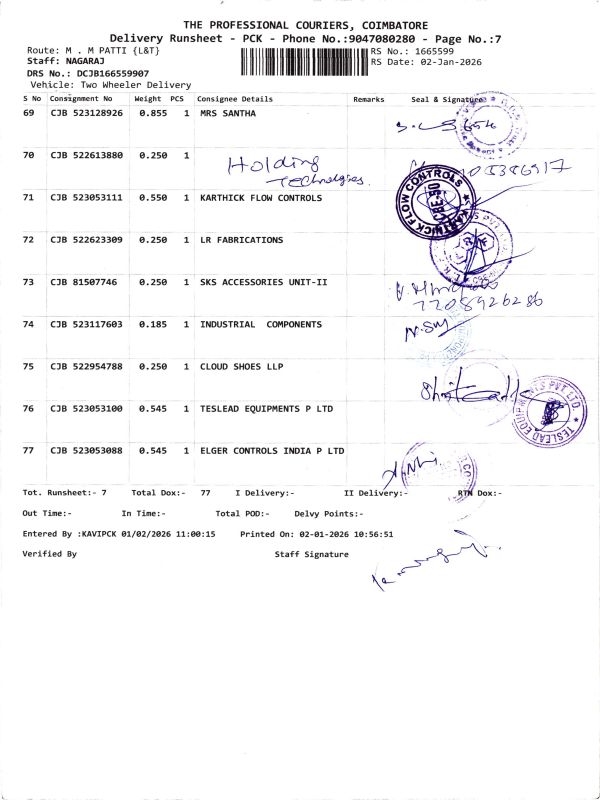 THE PROFESSIONAL COURIERS, COIMBATORE
Delivery Runsheet - PCK - Phone No.:9047080280 - Page No.:7
Route: M . M PATTI {L&T} RS No.: 1665599
Staff: NAGARAJ RS Date: 02-Jan-2026
DRS No.: DCJB166559907
Vehicle: Two Wheeler Delivery
S No Consignment No Weight PCS Consignee Details Remarks Seal & Signature
69 CJB 523128926 0.855 1 MRS SANTHA
70 CJB 522613880 0.250 1 Holding
Technologies.
71 CJB 523053111 0.550 1 KARTHICK FLOW CONTROLS
KARTHICK FLOW CONTROLS
72 CJB 522623309 0.250 1 LR FABRICATIONS
73 CJB 81507746 0.250 1 SKS ACCESSORIES UNIT-II
7708926286
74 CJB 523117603 0.185 1 INDUSTRIAL COMPONENTS
75 CJB 522954788 0.250 1 CLOUD SHOES LLP
76 CJB 523053100 0.545 1 TESLEAD EQUIPMENTS P LTD
TESLEAD EQUIPMENTS PVT LTD
77 CJB 523053088 0.545 1 ELGER CONTROLS INDIA P LTD
Tot. Runsheet:- 7 Total Dox:- 77 I Delivery:- II Delivery:- RTN Dox:-
Out Time:- In Time:- Total POD:- Delvy Points:-
Entered By :KAVIPCK 01/02/2026 11:00:15 Printed On: 02-01-2026 10:56:51
Verified By Staff Signature